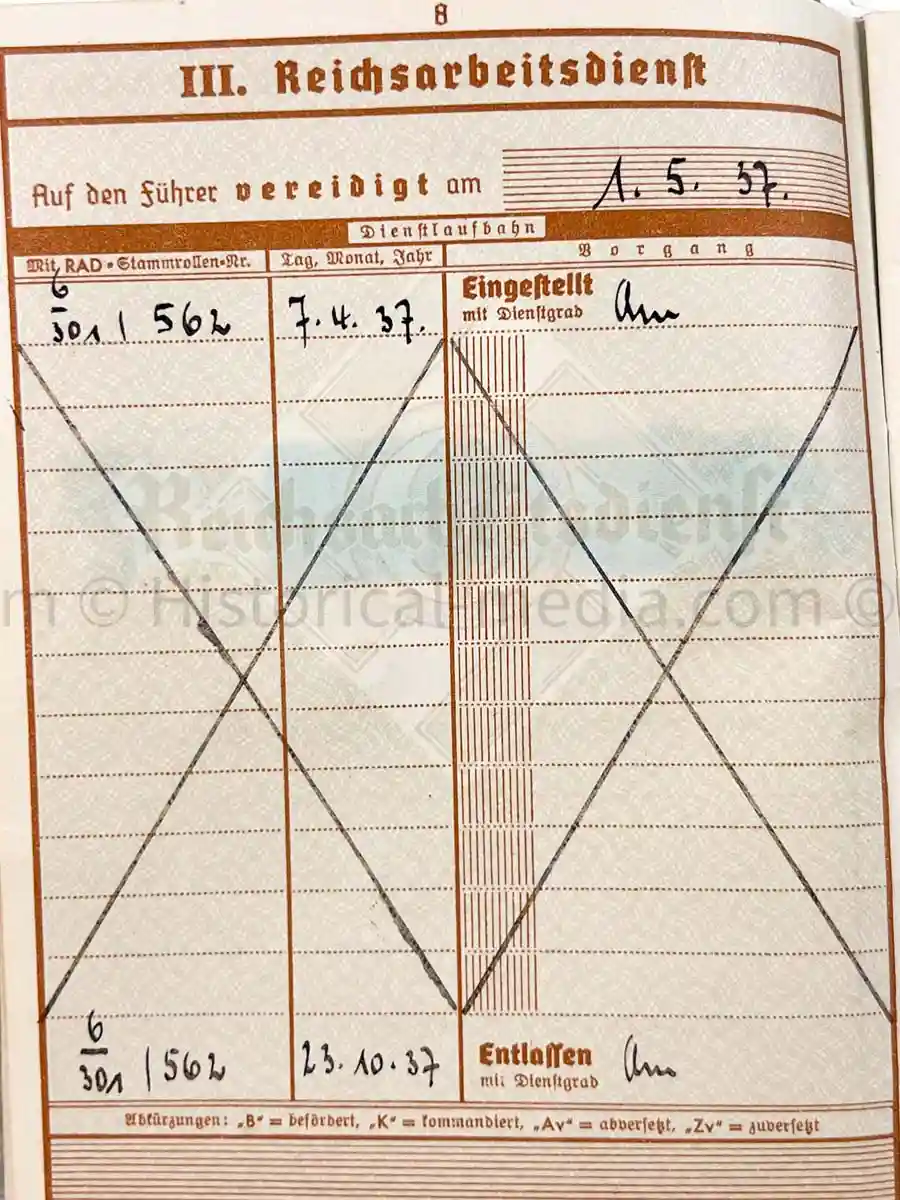 8
III. Reichsarbeitsdienst
Auf den Führer vereidigt am 1. 5. 37.
Dienstlaufbahn
Mit RAD-Stammrollen-Nr. Tag, Monat, Jahr Vorgang
6/301 / 562 7. 4. 37. Eingestellt mit Dienstgrad Am
Reichsarbeitsdienst
m © Historical-media.com ©
6/301 / 562 23. 10. 37 Entlassen mit Dienstgrad Am
Abkürzungen: „B“ = befördert, „K“ = kommandiert, „Av“ = abversetzt, „Zv“ = zuversetzt